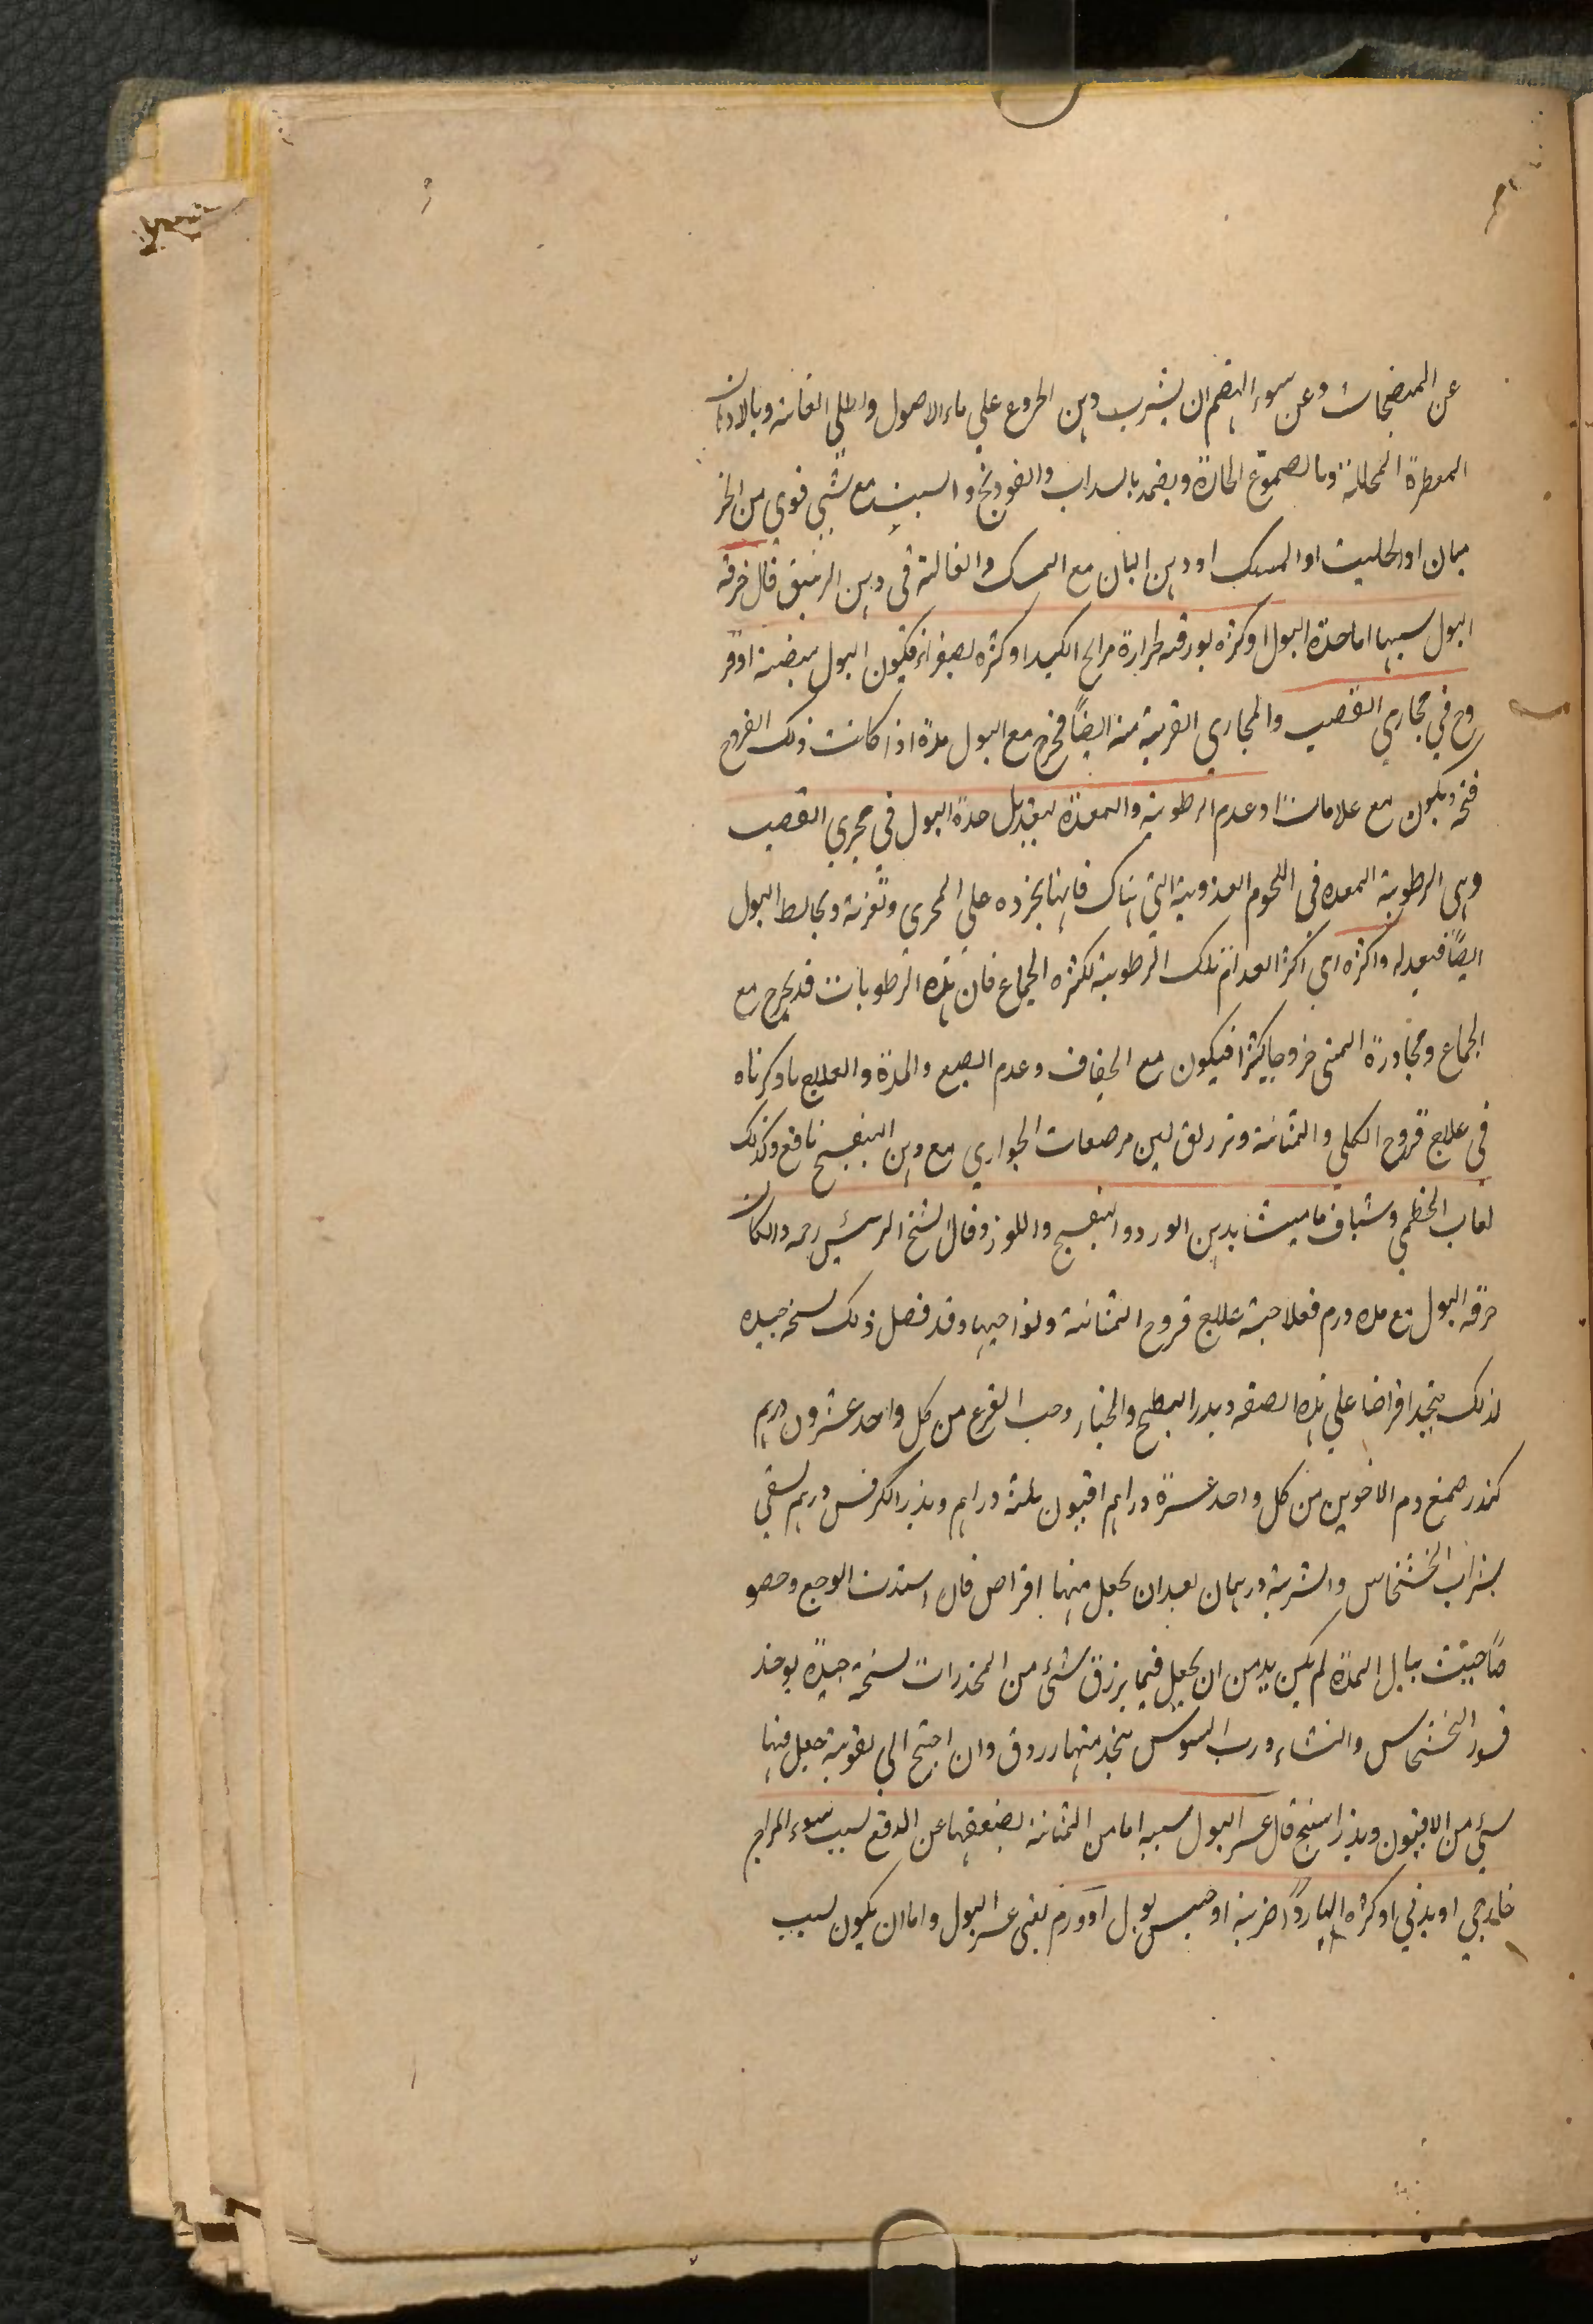 عن المنضجات وعن سوء الهضم ان يشرب دهن الخروع علي ماء الاصول واطلي العانة وبالادهان
المعطرة المحللة وبالصموغ الحارة ويضمد بالسداب والفودنج والسبت مع شي قوي من الجر
ميان او الحلتيت او المسك او دهن البان مع المسك والغالية في دهن الزنبق قال حرقة
البول سببها اما حدة البول او كثرة بورقته لحرارة مزاج الكبد او كثرة لصفراء فيكون البول مبيضة او قر
وح في مجاري القضيب والمجاري القريبة منه ايضًا فيخرج مع البول مدة اذا كانت ذلك القروح
فتحه ويكون مع علامات او عدم الرطوبة والمعدة لتعديل حدة البول في مجري القضيب
وهي الرطوبة المعده في اللحوم الغذوية التي هناك فانها تجزده علي المجرى وتغزية وتخالط البول
ايضًا فيعدله واكثره اي اكثر انعدام تلك الرطوبة لكثره الجماع فان هذه الرطوبات قد يخرج مع
الجماع ومجاورة المني خروجا كثيرا فيكون مع الجفاف وعدم الصبع والمدة والعلاج ما ذكرناه
في علاج قروح الكلي والمثانة وتزريق لبن مرضعات الجواري مع دهن البنفسج نافع وكذلك
لعاب الخطمي وشياف ماميثا بدهن الورد والبنفسج واللوز وقال الشيخ الرئيس رحمه وان كان
حرقه البول مع مده ورم فعلاجه علاج قروح المثانة ونواحيها وقد فصل ذلك نسخه جيده
لذلك يتخذ اقراضا علي هذه الصفه وبذر البطيخ والخيار وحب القرع من كل واحد عشرون درهم
كندر صمغ دم الاخوين من كل واحد عشرة دراهم افيون ثلثة دراهم وبذر الكرفس درهم يسقي
بشراب الخشخاس والشربة درهمان بعد ان يجعل منها اقراص فان اشتدت الوجع وحصو
صًا حيث يبال المدة لم يكن بد من ان يجعل فيما يزرق شئ من المخدرات نسخة جيدة يوخذ
قسور الخشخاس والنشاء ورب السوس يتخذ منها زروق وان احتج الي تقويه جعل فيها
شئ من الافيون وبذر البنج قال عسر البول سببه اما من المثانة لضعفها عن الدفع لسبب سوء المزاج
خارجي او بدني او كثره البارد او ضربة او حبس بول او ورم يعني عسر البول واما ان يكون لسبب